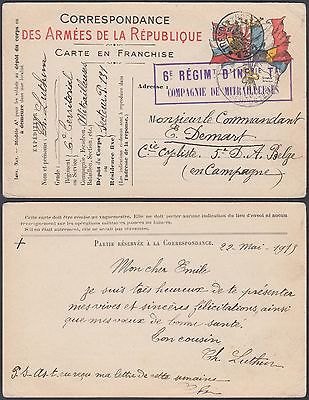 CORRESPONDANCE
DES ARMÉES DE LA RÉPUBLIQUE
CARTE EN FRANCHISE
6E RÉGIMT D'INFIE TE
COMPAGNIE DE MITRAILLEUSES
Adresse :
Monsieur le Commandant
E. Demart
Cie Cycliste 5e D. A. Belge
(en Campagne)
EXPÉDITEUR
Nom :
Grade :
Régiment 6e Territorial
ou Service
Mitrailleuses
Bataillon, Section, etc.)
Dépôt du Corps
ou
Résidence fixe
Secteur P.
Cette carte doit être remise au vaguemestre. Elle ne doit porter aucune indication du lieu d'envoi ni aucun
renseignement sur les opérations militaires passées ou futures.
S'il en était autrement, elle ne serait pas transmise.
PARTIE RÉSERVÉE A LA CORRESPONDANCE.
22 Mai - 1915
Mon cher Emile
je suis très heureux de te présenter
mes vives et sincères félicitations, ainsi
que mes vœux de bonne santé.
Ton cousin
Ch. Luthen
P.S. As-t-u reçu ma lettre de cette semaine